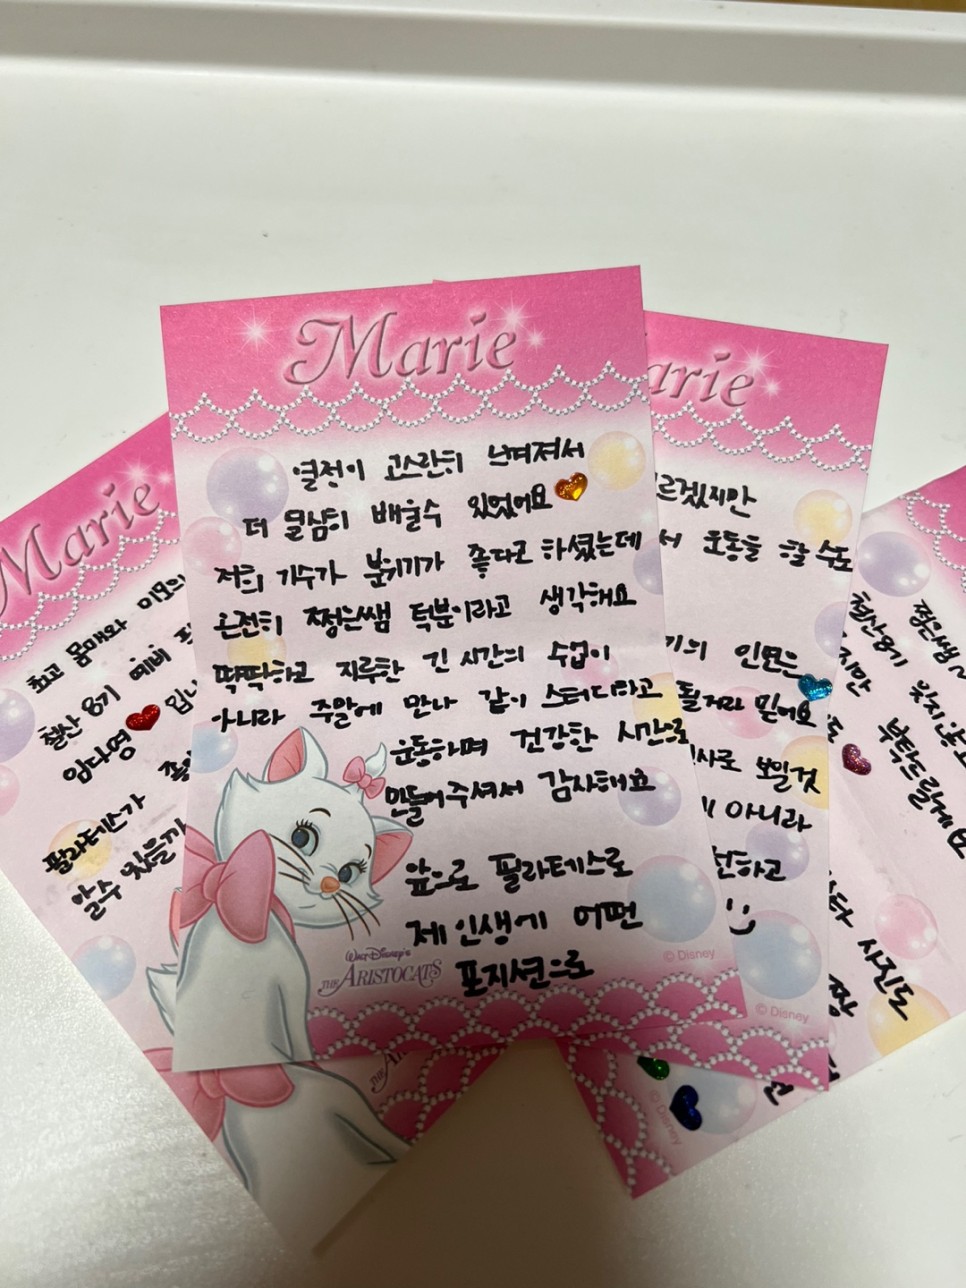 Marie
효고 몸매와 미모의
철산 8기 예비
임다영 입니
필라테스가
알수 있을까
Marie
열정이 고스란히 느껴져서
더 열심히 배울수 있었어요
저희 기수가 분위기가 좋다고 하셨는데
온전히 쩡은쌤 덕분이라고 생각해요
딱딱하고 지루한 긴 시간의 수업이
아니라 주말에 만나 같이 스터디하고
운동하며 건강한 시간으로
만들어주셔서 감사해요
앞으로 필라테스로
제 인생에 어떤
포지션으로
WALT DISNEY'S
THE ARISTOCATS
© Disney
arie
르겠지만
서 운동을 할 수도
기의 인연은
될거라 믿어요
사로 보일것
아니라
전하고
:)
© Disney
쩡은쌤
철산8기
지만
잊지 않고
부탁드릴게요
사진도
짱
© Disney
THE A